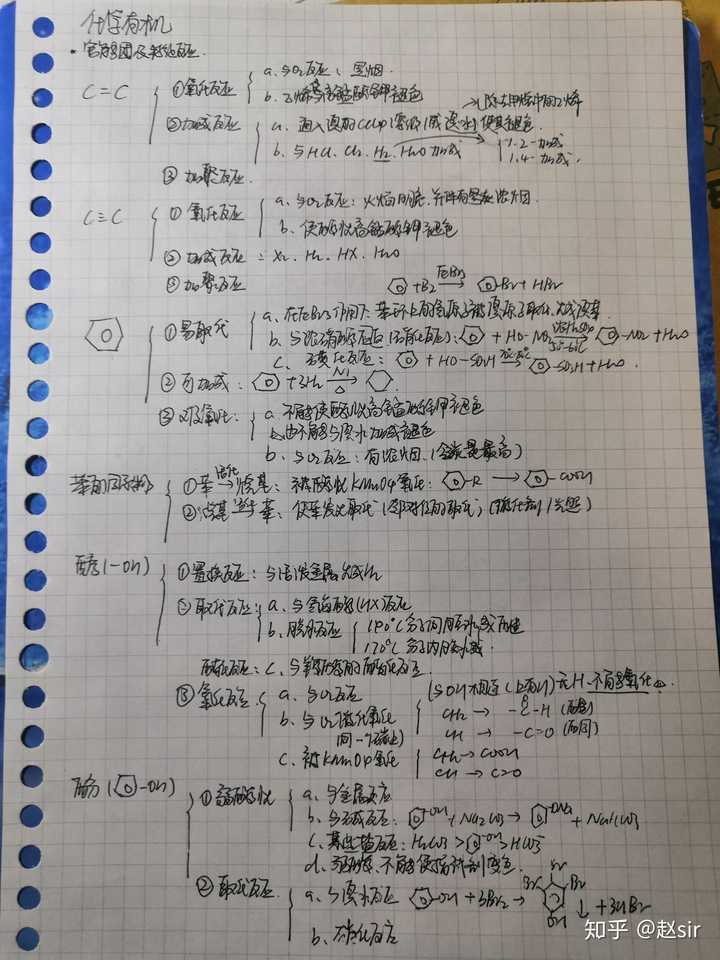 化学有机
· 官能团及对应反应.
C=C
①氧化反应
a. 与O₂反应: 黑烟.
b. 乙烯与高锰酸钾褪色
→除去甲烷中的乙烯
②加成反应
a. 通入溴的CCl₄溶液(或溴水)使其褪色
b. 与HCl. Cl₂. H₂. H₂O加成
1.2-加成
1.4-加成.
③加聚反应.
C≡C
①氧化反应
a. 与O₂反应: 火焰明亮.并伴有浓烟.
b. 使酸性高锰酸钾褪色
②加成反应: X₂. H₂. HX. H₂O
③加聚反应
+Br₂ FeBr₃ → -Br + HBr
①易取代
a. 在FeBr₃作用下: 苯环上的氢原子被溴原子取代.生成溴苯
b. 与浓硝酸反应(硝化反应): + HO-NO₂ 浓H₂SO₄ → -NO₂ + H₂O
c. 磺化反应: + HO-SO₃H → -SO₃H + H₂O.
②可加成: + 3H₂ Ni △ →
③难氧化:
a. 不能使酸性高锰酸钾褪色
也不能与溴水加成褪色
b. 与O₂反应: 有浓烟.(含碳量最高)
苯的同系物
①苯 活化→ 烷基: 被酸性KMnO₄氧化: -R → -COOH
②烷基 → 苯: 使苯发生取代(邻对位的取代)
醇(-OH)
①置换反应: 与活泼金属生成H₂
②取代反应:
a. 与氢卤酸(HX)反应
b. 脱水反应
140℃分子间脱水成乙醚
170℃分子内脱水成
酯化反应: c. 与羧酸的酯化反应.
③氧化反应
a. 与O₂反应
b. 与O₂催化氧化
c. 被KMnO₄氧化
(与OH相连C上有H)无H.不能氧化
CH₂ → -C-H (醛) O
CH → -C=O (酮)
CH₂→COOH
CH→C=O
酚( -OH)
①弱酸性
a. 与金属反应
b. 与碱反应: -OH + Na₂CO₃ → -ONa + NaHCO₃
c. 酸性: H₂CO₃ > -OH > HCO₃⁻
d. 弱酸性. 不能使指示剂变色.
②取代反应
a. 与溴水反应 -OH + 3Br₂ → Br Br Br OH ↓ + 3HBr
知乎 @赵sir